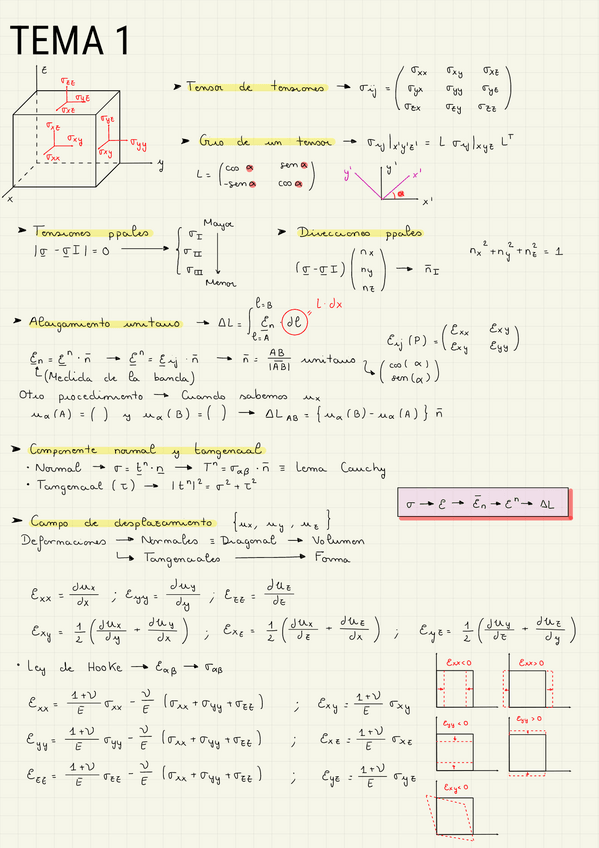 TEMA 1
z
σzz
σyz
σxz
σyz
σxy
σyy
σxx
σxy
y
x
➤ Tensor de tensiones → σij = ( σxx σxy σxz
σyx σyy σyz
σzx σzy σzz )
➤ Giro de un tensor → σij|x'y'z' = L σij|xyz L^T
L = ( cos α sen α
-sen α cos α )
y' y' x'
α
x'
➤ Tensiones ppales
|σ - σ I| = 0 → { σI σII σIII
Mayor
Menor
➤ Direcciones ppales
(σ - σ I) ( nx ny nz ) → n̄I
nx² + ny² + nz² = 1
➤ Alargamiento unitario → ΔL = ∫ l=A l=B εn dl = L·dx
εn = ε^n · n̄ → ε^n = εij · n̄ → n̄ = AB/|AB| unitario ( cos(α) sen(α) )
(Medida de la banda)
εij (P) = ( εxx εxy
εxy εyy )
Otro procedimiento → Cuando sabemos ux
uα(A) = ( ) y uα(B) = ( ) → ΔL AB = { uα(B) - uα(A) } n̄
➤ Componente normal y tangencial
• Normal → σ = t^n · n → T^n = σαβ · n̄ ≡ Lema Cauchy
• Tangencial (τ) → |t^n|² = σ² + τ²
σ → ε → ε̄n → ε^n → ΔL
➤ Campo de desplazamiento {ux, uy, uz}
Deformaciones → Normales ≡ Diagonal → Volumen
↳ Tangenciales → Forma
εxx = dux/dx ; εyy = duy/dy ; εzz = duz/dz
εxy = 1/2 (dux/dy + duy/dx) ; εxz = 1/2 (dux/dz + duz/dx) ; εyz = 1/2 (duy/dz + duz/dy)
• Ley de Hooke → εαβ → σαβ
εxx = 1+ν/E σxx - ν/E (σxx + σyy + σzz) ; εxy = 1+ν/E σxy
εyy = 1+ν/E σyy - ν/E (σxx + σyy + σzz) ; εxz = 1+ν/E σxz
εzz = 1+ν/E σzz - ν/E (σxx + σyy + σzz) ; εyz = 1+ν/E σyz
εxx<0 εxx>0
εyy<0 εyy>0
εxy<0